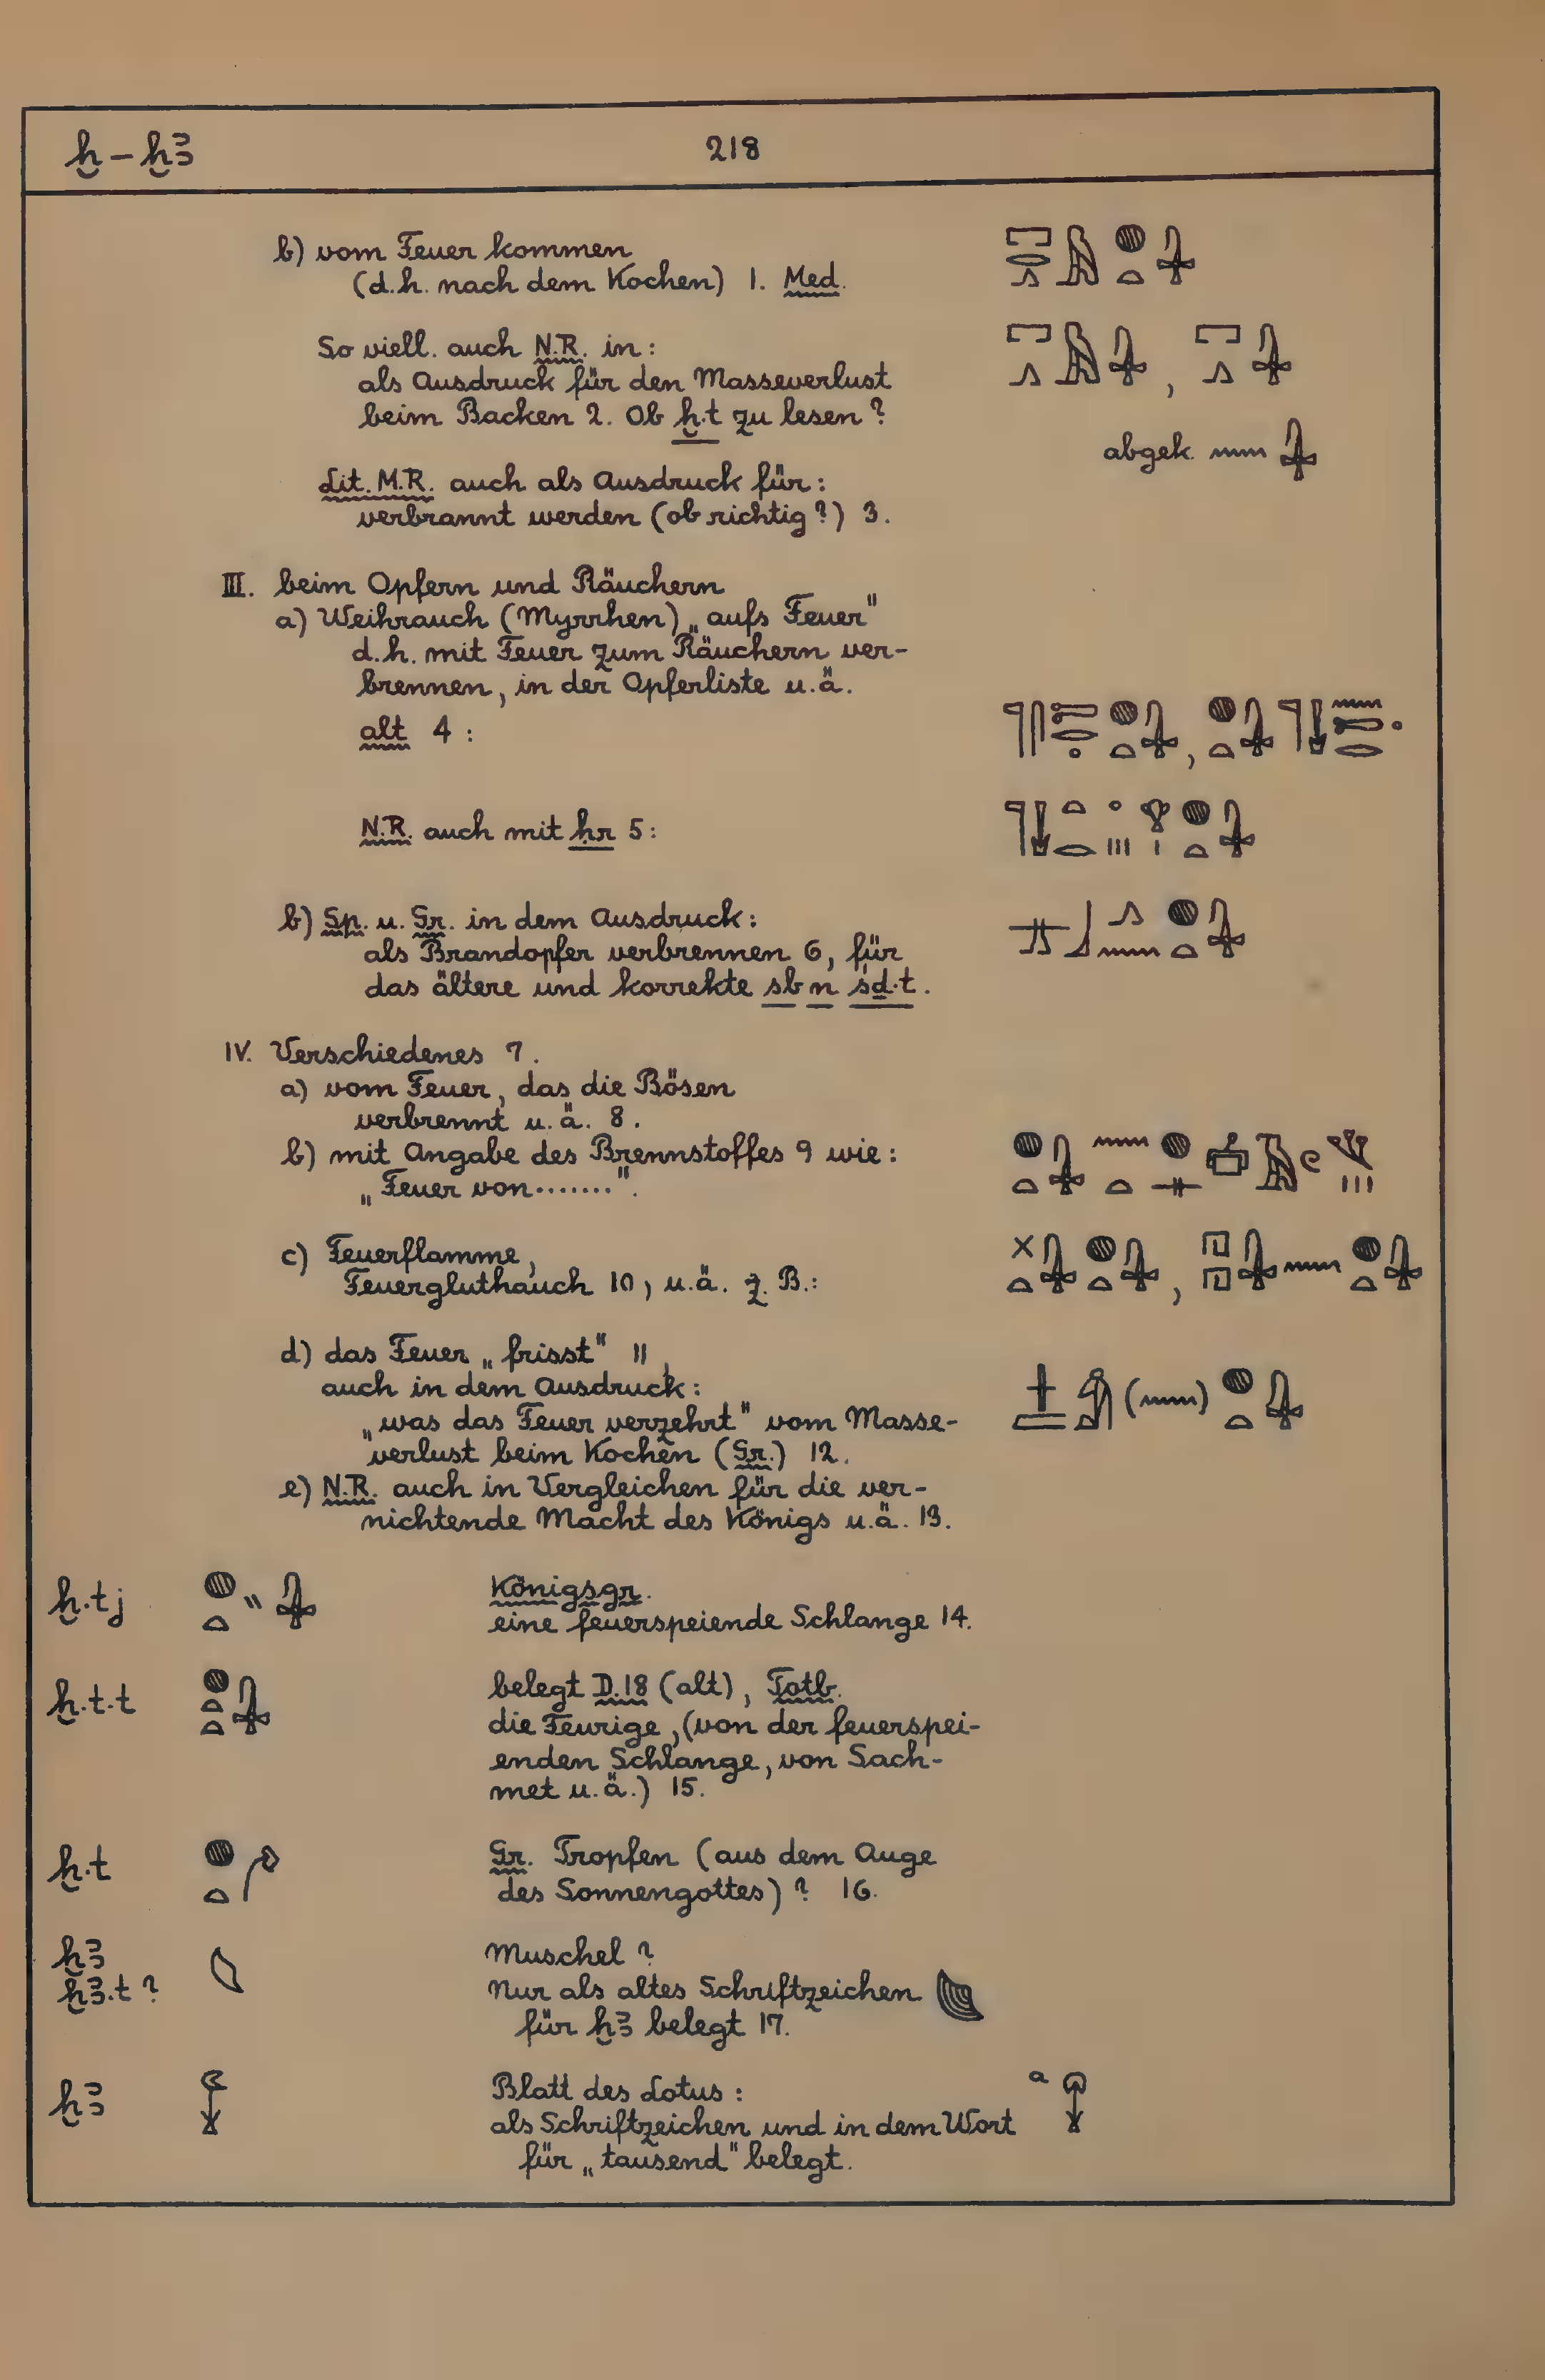 ḫ – ḫꜣ 218
b) vom Feuer kommen
(d.h. nach dem Kochen) 1. Med.
So viell. auch N.R. in:
als Ausdruck für den Masseverlust
beim Backen 2. Ob ḫ.t zu lesen?
abgek.
Lit. M.R. auch als Ausdruck für:
verbrannt werden (ob richtig?) 3.
III. beim Opfern und Räuchern
a) Weihrauch (Myrrhen) „aufs Feuer"
d.h. mit Feuer zum Räuchern ver-
brennen, in der Opferliste u.ä.
alt 4 :
N.R. auch mit ḥr 5:
b) Sp. u. Gr. in dem Ausdruck:
als Brandopfer verbrennen 6, für
das ältere und korrekte sb n śḏ.t.
IV. Verschiedenes 7.
a) vom Feuer, das die Bösen
verbrennt u.ä. 8.
b) mit Angabe des Brennstoffes 9 wie:
„Feuer von.......".
c) Feuerflamme,
Feuergluthauch 10, u.ä. z.B.:
d) das Feuer „frisst" 11,
auch in dem Ausdruck:
„was das Feuer verzehrt" vom Masse-
verlust beim Kochen (Gr.) 12.
e) N.R. auch in Vergleichen für die ver-
nichtende Macht des Königs u.ä. 13.
ḫ.tj Königsgr.
eine feuerspeiende Schlange 14.
ḫ.t.t belegt D.18 (alt), Totb.
die Feurige, (von der feuerspei-
enden Schlange, von Sach-
met u.ä.) 15.
ḫ.t Gr. Tropfen (aus dem Auge
des Sonnengottes)? 16.
ḫꜣ Muschel?
ḫꜣ.t? Nur als altes Schriftzeichen
für ḫꜣ belegt 17.
ḫꜣ Blatt des Lotus: a
als Schriftzeichen und in dem Wort
für „tausend" belegt.